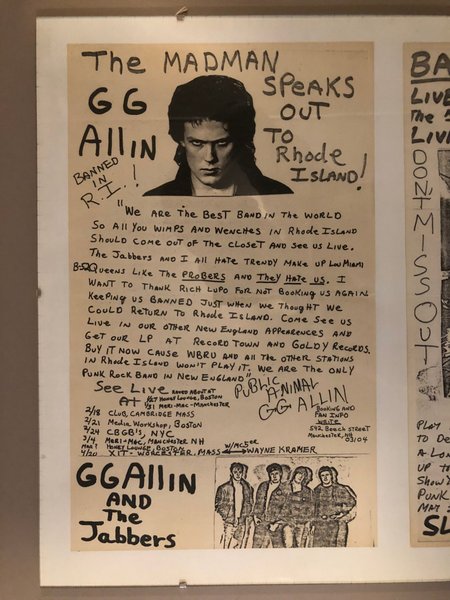 The MADMAN
GG
ALLIN
SPEAKS
OUT
TO
Rhode
ISLAND!
BANNED
IN
R.I..!
"We ARE THE BEST BAND IN THE WORLD
SO ALL YOU WIMPS AND WENCHES IN RHODE ISLAND
SHOULD COME OUT OF THE CLOSET AND SEE US LIVE.
THE JABBERS AND I ALL HATE TRENDY MAKE UP
QUEENS LIKE THE PROBERS AND THEY HATE US. I
WANT TO THANK RICH LUPO FOR NOT BOOKING US AGAIN
KEEPING US BANNED JUST WHEN WE THOUGHT WE
COULD RETURN TO RHODE ISLAND. COME SEE US
LIVE IN OUR OTHER NEW ENGLAND APPEARENCES AND
GET OUR LP AT RECORD TOWN AND GOLDY RECORDS.
BUY IT NOW CAUSE WBRU AND ALL THE OTHER STATIONS
IN RHODE ISLAND WON'T PLAY IT. WE ARE THE ONLY
PUNK ROCK BAND IN NEW ENGLAND"
SEE LIVE
AT
HONEY LOUNGE, BOSTON
1/31 MARI-MAC-MANCHESTER
2/18 CLUB, CAMBRIDGE MASS
2/21 MEDIA WORKSHOP, BOSTON
2/24 CBGB'S, NYC
3/4 MARI-MAC, MANCHESTER NH
HONEY LOUNGE, BOSTON
4/20 XIT-WORCESTER, MASS W/MC5ER WAYNE KRAMER
PUBLIC
ANIMAL
GG ALLIN
BOOKING AND
FAN INFO
WRITE
592 BEECH STREET
MANCHESTER, NH
03104
GG ALLIN
AND
The
Jabbers
BA
LIVE
THE
LIVE
DONT MISS OUT
PLAY
TO DE
A LON
UP TO
SHOW
PUNK
MAY
SL